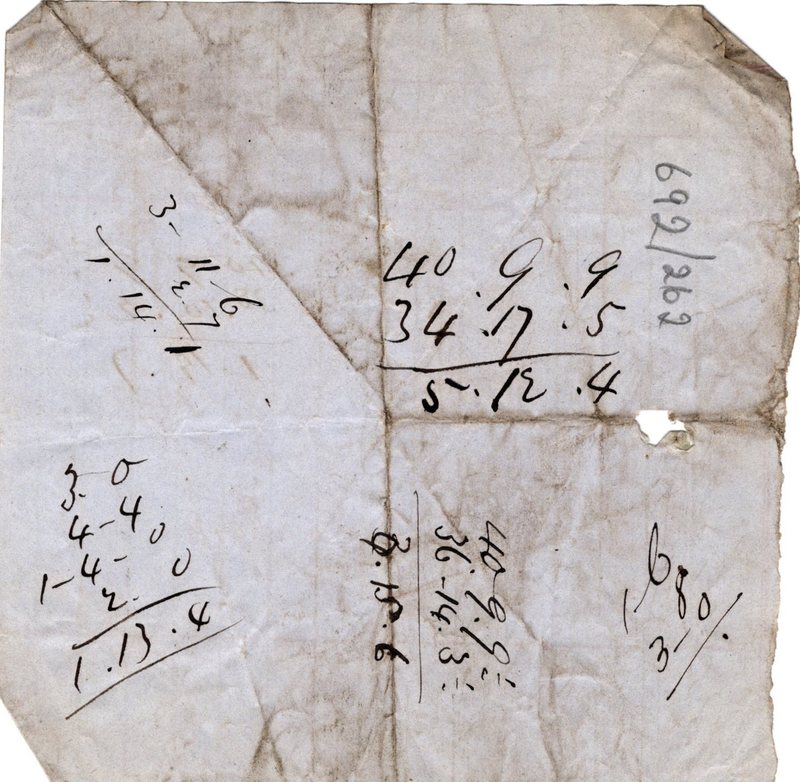 692/262
40.9.9
34.17.5
5.12.4
3-11
3.7
1.14.1
3-0
4-4
1-4-0
2.0
1.13.4
40.9.9
36-14.3
3.15.6
6
1 80
3-